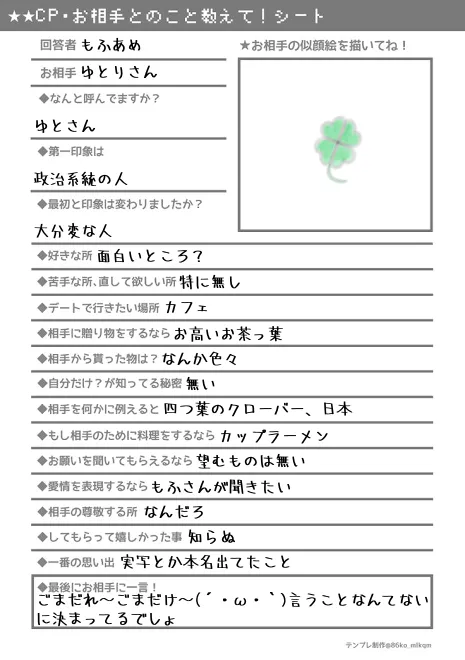 ★★CP・お相手とのこと教えて！シート
回答者 もふあめ
★お相手の似顔絵を描いてね！
お相手 ゆとりさん
◆なんと呼んでますか？
ゆとさん
◆第一印象は
政治系統の人
◆最初と印象は変わりましたか？
大分変な人
◆好きな所 面白いところ？
◆苦手な所、直して欲しい所 特に無し
◆デートで行きたい場所 カフェ
◆相手に贈り物をするなら お高いお茶っ葉
◆相手から貰った物は？ なんか色々
◆自分だけ？が知ってる秘密 無い
◆相手を何かに例えると 四つ葉のクローバー、日本
◆もし相手のために料理をするなら カップラーメン
◆お願いを聞いてもらえるなら 望むものは無い
◆愛情を表現するなら もふさんが聞きたい
◆相手の尊敬する所 なんだろ
◆してもらって嬉しかった事 知らぬ
◆一番の思い出 実写とか本名出てたこと
◆最後にお相手に一言！
ごまだれ〜ごまだけ〜(´・ω・｀)言うことなんてない
に決まってるでしょ
テンプレ制作@86ko_mlkqm